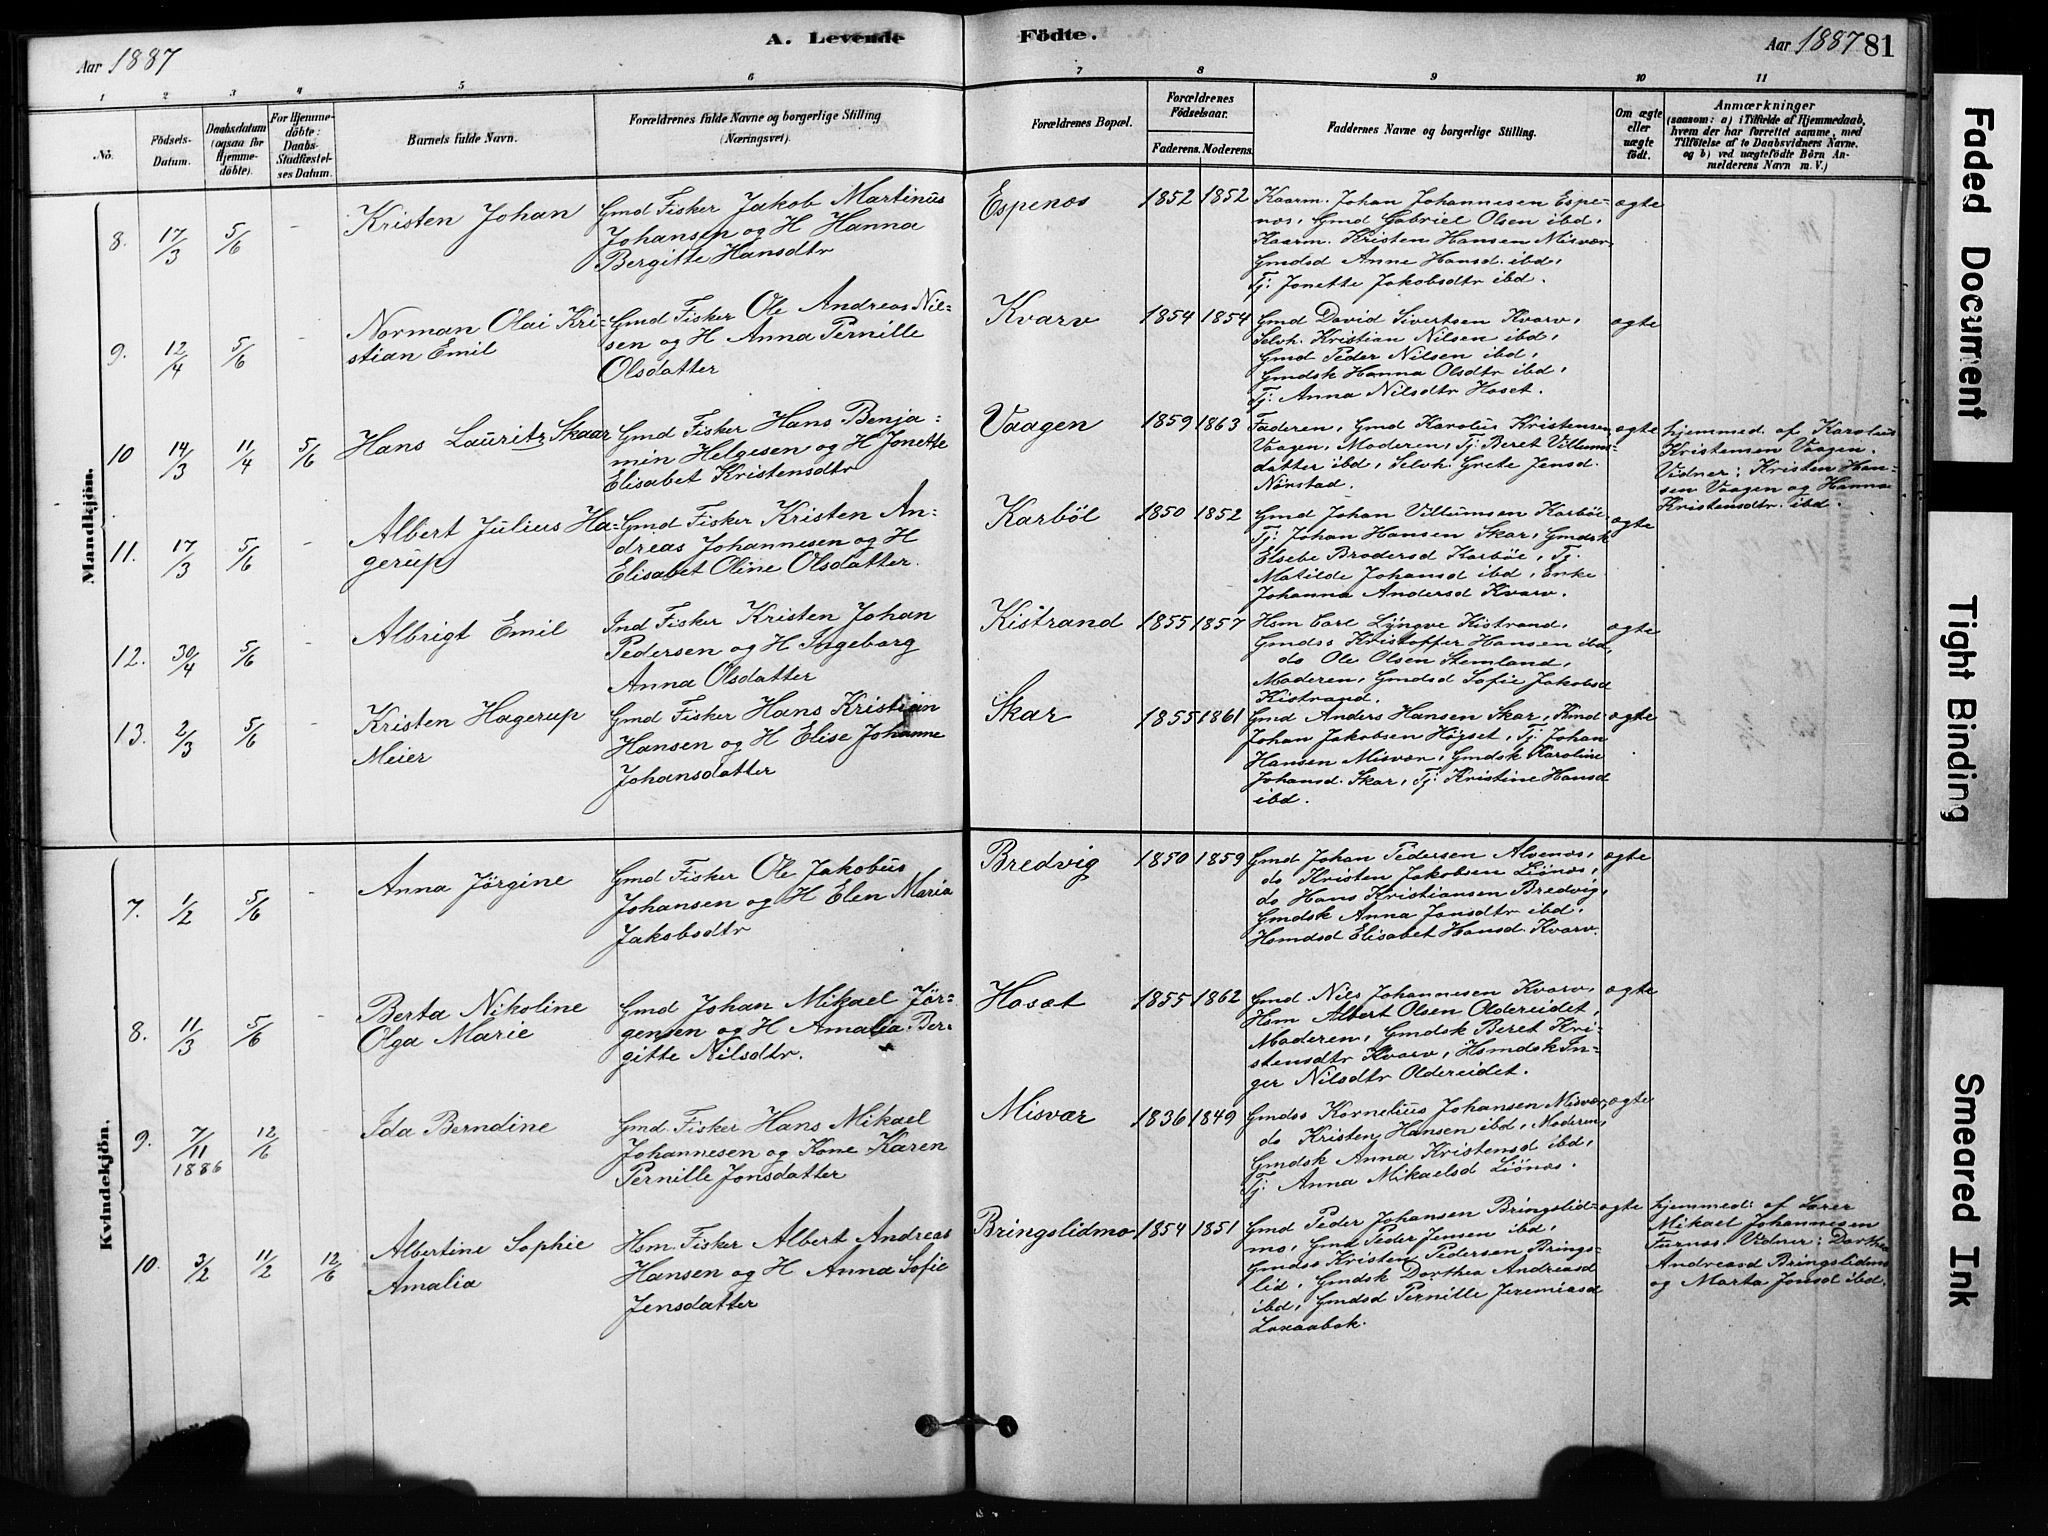 Aar 1887
A. Levende
Födte.
Aar 1887
81
1
2
3
4
5
6
7
8
9
10
11
No.
Födsels-
Datum.
Daabsdatum
(ogsaa for
Hjemme-
döbte).
For Hjemme-
döbte:
Daabs-
Stadfæstel-
ses Datum.
Barnets fulde Navn.
Forældrenes fulde Navne og borgerlige Stilling
(Næringsvei).
Forældrenes Bopæl.
Forældrenes
Födselsaar.
Faderens. Moderens.
Faddernes Navne og borgerlige Stilling.
Om ægte
eller
uægte
födt.
Anmærkninger
(saasom: a) i Tilfælde af Hjemmedaab,
hvem der har forrettet samme, med
Tilföielse af to Daabsvidners Navne,
og b) ved uægtefödte Börn An-
melderens Navn m. V.)
Mandkjön.
8. 17/3 5/6 -
Kristen Johan
Gmd Fisker Jakob Martinus
Johansen og H Hanna
Bergitte Hansdtr
Espenes 1852 1852
Kaarm. Johan Johannesen Espe-
nes, Gmd Gabriel Olsen ibd,
Kaarm. Kristen Hansen Misvær
Gmdsd Anne Hansd. ibd,
Tj. Jonette Jakobsdtr ibd.
ægte
9. 12/4 5/6 -
Norman Olai Kri-
stian Emil
Gmd Fisker Ole Andreas Nil-
sen og H Anna Pernille
Olsdatter
Kvarv 1854 1854
Gmd David Sivertsen Kvarv,
Selvh. Kristian Nilsen ibd,
Gmd Peder Nilsen ibd,
Gmdsk Hanna Olsdtr ibd,
Tj. Anna Nilsdtr Hoset.
ægte
10 14/3 11/4 5/6
Hans Lauritz Skaar
Gmd Fisker Hans Benja-
min Helgesen og H Jonette
Elisabet Kristensdtr
Vaagen 1859 1863
Faderen, Gmd Karolus Kristensen
Vaagen, Moderen, Tj. Beret Villums-
datter ibd, Selvh. Grete Jensd.
Nörstad.
ægte
Hjemmed. af Karolus
Kristensen Vaagen.
Vidner: Kristen Han-
sen Vaagen og Hanna
Kristensdtr. ibd.
11. 17/3 5/6 -
Albert Julius Ha-
gerup
Gmd Fisker Kristen An-
dreas Johannesen og H
Elisabet Oline Olsdatter.
Karböl 1850 1852
Gmd Johan Villumsen Karböl,
Tj. Johan Hansen Skar, Gmdsk
Elsebe Brodersd Karböl, Tj.
Matilde Johansd ibd, Enke
Johanna Andersd Kvarv.
ægte
12. 30/4 5/6 -
Albrigt Emil
Ind Fisker Kristen Johan
Pedersen og H Ingeborg
Anna Olsdatter
Kistrand 1855 1857
Hsm Carl Lyngve Kistrand,
Gmdss Kristoffer Hansen ibd,
do Ole Olsen Stemland,
Moderen, Gmdsd Sofie Jakobsd
Kistrand.
ægte
13. 2/3 5/6 -
Kristen Hagerup
Meier
Gmd Fisker Hans Kristian
Hansen og H Elise Johanne
Johansdatter
Skar 1855 1861
Gmd Anders Hansen Skar, Gmd
Johan Jakobsen Högset, Tj. Johan
Hansen Misvær, Gmdsk Karoline
Johansd. Skar, Tj. Kristine Hansd
ibd.
ægte
Kvindekjön.
7. 1/2 5/6 -
Anna Jörgine
Gmd Fisker Ole Jakobus
Johansen og H Elen Maria
Jakobsdtr
Bredvig 1850 1859
Gmd Johan Pedersen Alvenes,
do Kristen Jakobsen Liönes,
do Hans Kristiansen Bredvig,
Gmdsk Anna Jonsdtr ibd,
Hsmdsd Elisabet Hansd. Kvarv.
ægte
8. 11/3 5/6 -
Berta Nikoline
Olga Marie
Gmd Johan Mikael Jör-
gensen og H Amalia Ber-
gitte Nilsdtr.
Hoset 1855 1862
Gmd Nils Johannesen Kvarv,
Hsm Albert Olsen Oldereidet,
Moderen, Gmdsk Beret Kri-
stensdtr Kvarv, Hsmdsk In-
ger Nilsdtr Oldereidet.
ægte
9. 7/11 1886 12/6
Ida Berndine
Gmd. Fisker Hans Mikael
Johannesen og Kone Karen
Pernille Jonsdatter
Misvær 1836 1849
Gmdss Kornelius Johansen Misvær,
do Kristen Hansen ibd, Moderen,
Gmdsk Anna Kristensd ibd,
Tj. Anna Mikaelsd Liönes.
ægte
10. 3/2 11/2 12/6
Albertine Sophie
Amalia
Hsm. Fisker Albert Andreas
Hansen og H Anna Sofie
Jensdatter
Bringslidmo 1854 1851
Gmd Peder Johansen Bringslid-
mo, Gmd Peder Jensen ibd,
Gmdss Kristen Pedersen Brings-
lid, Gmdsk Dorthea Andreasd
ibd, Gmdsd Pernille Jeremiasd
Laxaabak.
ægte
Hjemmed: af Lærer
Mikael Johannesen
Furnes. Vidner: Dorthea
Andreasd Bringslidmo
og Marta Jonsd ibd.
Faded Document
Tight Binding
Smeared Ink